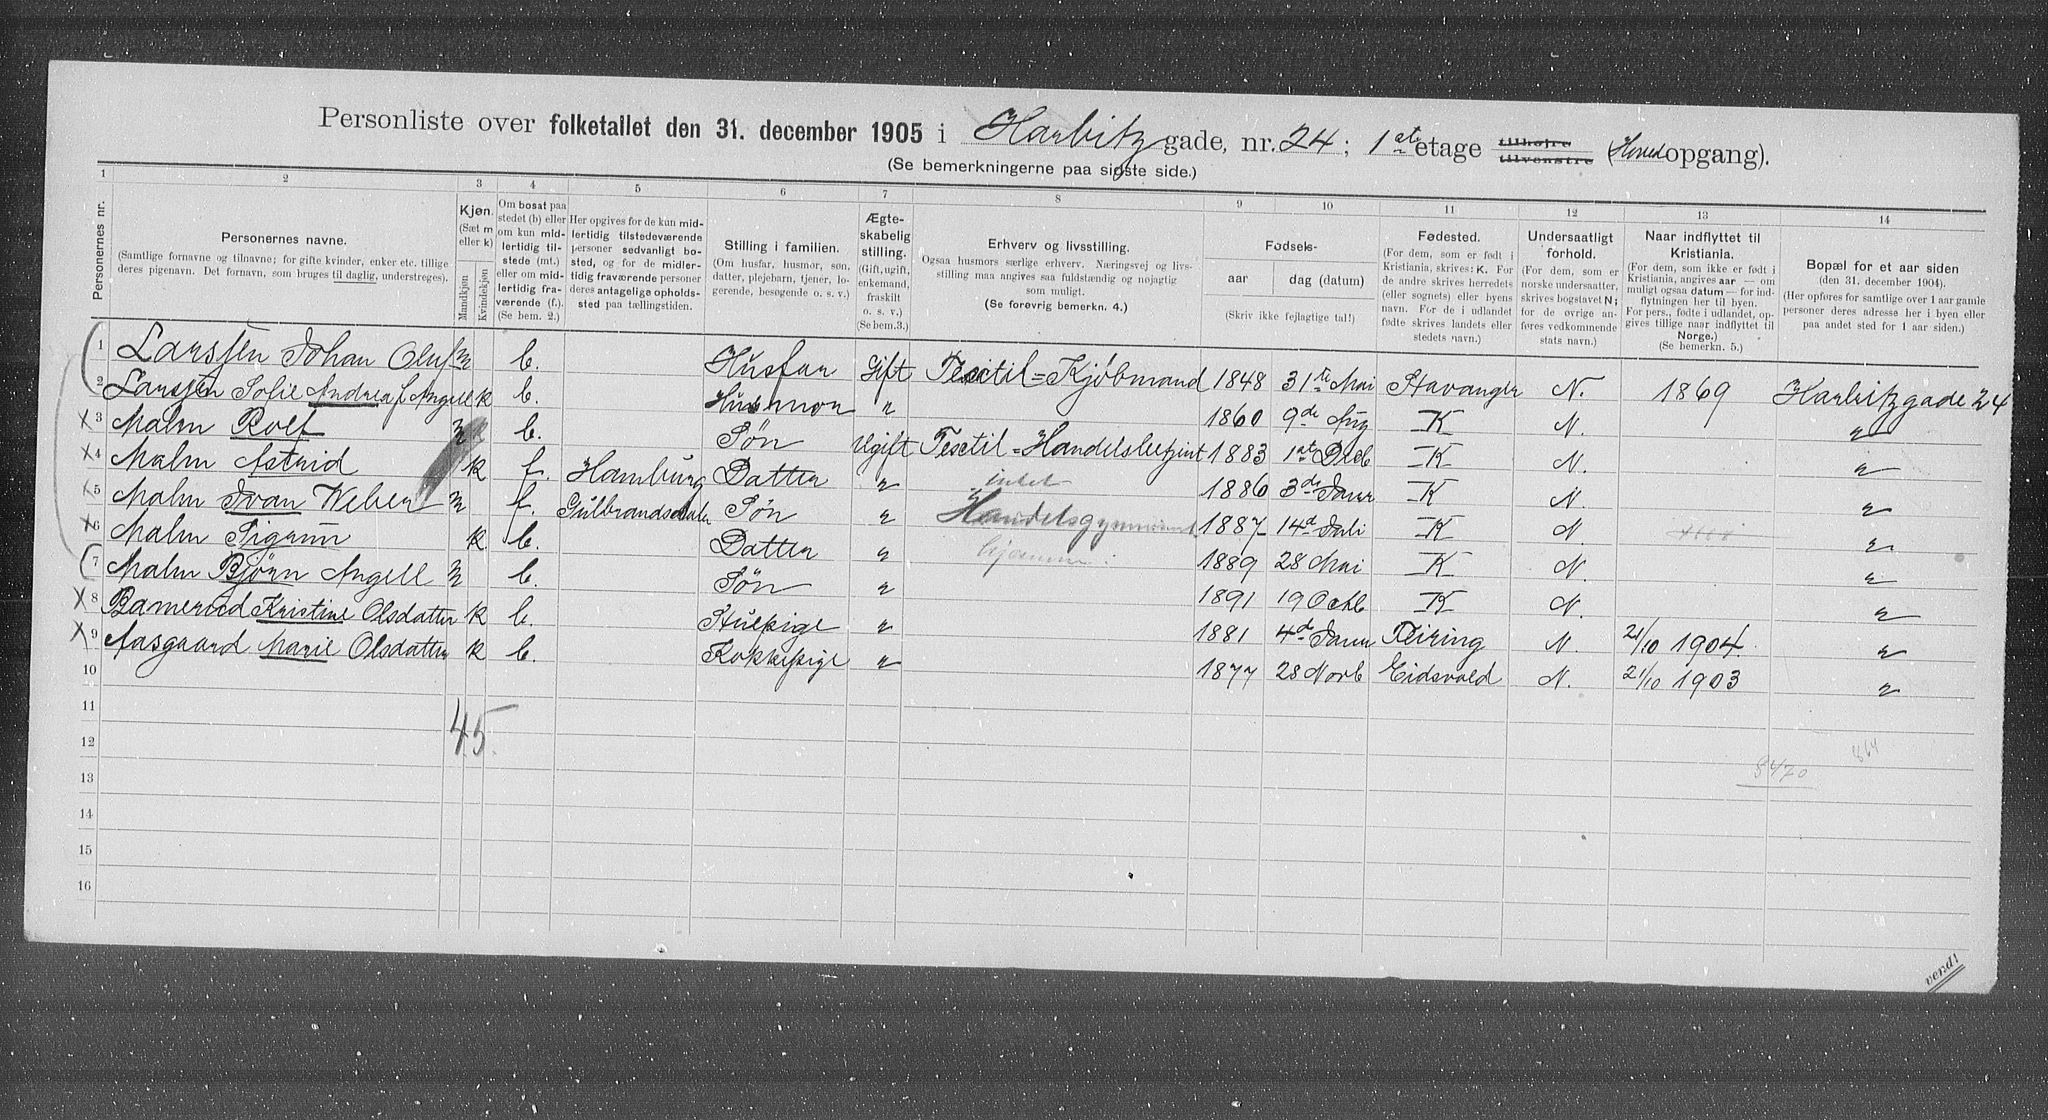 Personliste over folketallet den 31. december 1905 i Harbitz gade, nr. 24; 1ste etage tilhøjre tilvenstre (Hovedopgang).
(Se bemerkningerne paa sidste side.)
1 2 3 4 5 6 7 8 9 10 11 12 13 14
Personernes nr.
Personernes navne.
(Samtlige fornavne og tilnavne; for gifte kvinder, enker etc. tillige deres pigenavn. Det fornavn, som bruges til daglig, understreges).
Kjøn. (Sæt m eller k)
Mandkjøn
Kvindekjøn
Om bosat paa stedet (b) eller om kun midlertidig tilstede (mt.) eller om midlertidig fraværende (f.). (Se bem. 2.)
Her opgives for de kun midlertidig tilstedeværende personer sedvanligt bosted, og for de midlertidig fraværende personer deres antagelige opholdssted paa tællingstiden.
Stilling i familien.
(Om husfar, husmor, søn, datter, plejebarn, tjener, logerende, besøgende o. s. v.)
Ægteskabelig stilling.
(Gift, ugift, enkemand, fraskilt o. s. v.)
(Se bem. 3.)
Erhverv og livsstilling.
Ogsaa husmors særlige erhverv. Næringsvej og livsstilling maa angives saa fuldstændig og nøjagtig som muligt.
(Se forøvrig bemerkn. 4.)
Fødsels-
aar
dag (datum)
(Skriv ikke fejlagtige tal!)
Fødested.
(For dem, som er født i Kristiania, skrives: K. For de andre skrives herredets (eller sognets) eller byens navn. For de i udlandet fødte skrives landets eller stedets navn.)
Undersaatligt forhold.
(For dem, som er norske undersaatter, skrives bogstavet N; for de øvrige anføres vedkommende stats navn.)
Naar indflyttet til Kristiania.
(For dem, som ikke er født i Kristiania, angives aar — om muligt ogsaa datum — for indflytningen her til byen. For pers., fødte i udlandet, opgives tillige naar indflyttet til Norge.)
(Se bemerkn. 5.)
Bopæl for et aar siden
(den 31. december 1904).
(Her opføres for samtlige over 1 aar gamle personer deres adresse her i byen eller paa andet sted for 1 aar siden.)
1 Larssen Johan Oluf m b. Husfar Gift Textil=Kjøbmand 1848 31te Mai Stavanger N. 1869 Harbitzgade 24
2 Larssen Sofie Andrea f. Angell k b. Husmor " 1860 9de Aug K N. "
x 3 Malm Rolf m b. Søn Ugift Textil=Handelsbetjent 1883 1ste Decb K N. "
x 4 Malm Astrid k f. Hamburg Datter " intet 1886 3de Janr K N. "
x 5 Malm Ivan Weber m f. Gulbrandsdalen Søn " Handelsgymnasiet 1887 14d Juli K N. "
x 6 Malm Sigrun k b. Datter " hjemme 1889 28 Mai K N. "
7 Malm Bjørn Angell m b. Søn " 1891 19 Octb K N. "
x 8 Bamerud Kristine Olsdatter k b. Stuepige " 1881 4de Janr Feiring N. 21/10 1904. "
x 9 Aasgaard Marie Olsdatter k b. Kokkepige " 1877 28 Novb Eidsvold N. 21/10 1903 "
10
11
45.
12
864
13
8470
14
15
16
vend!